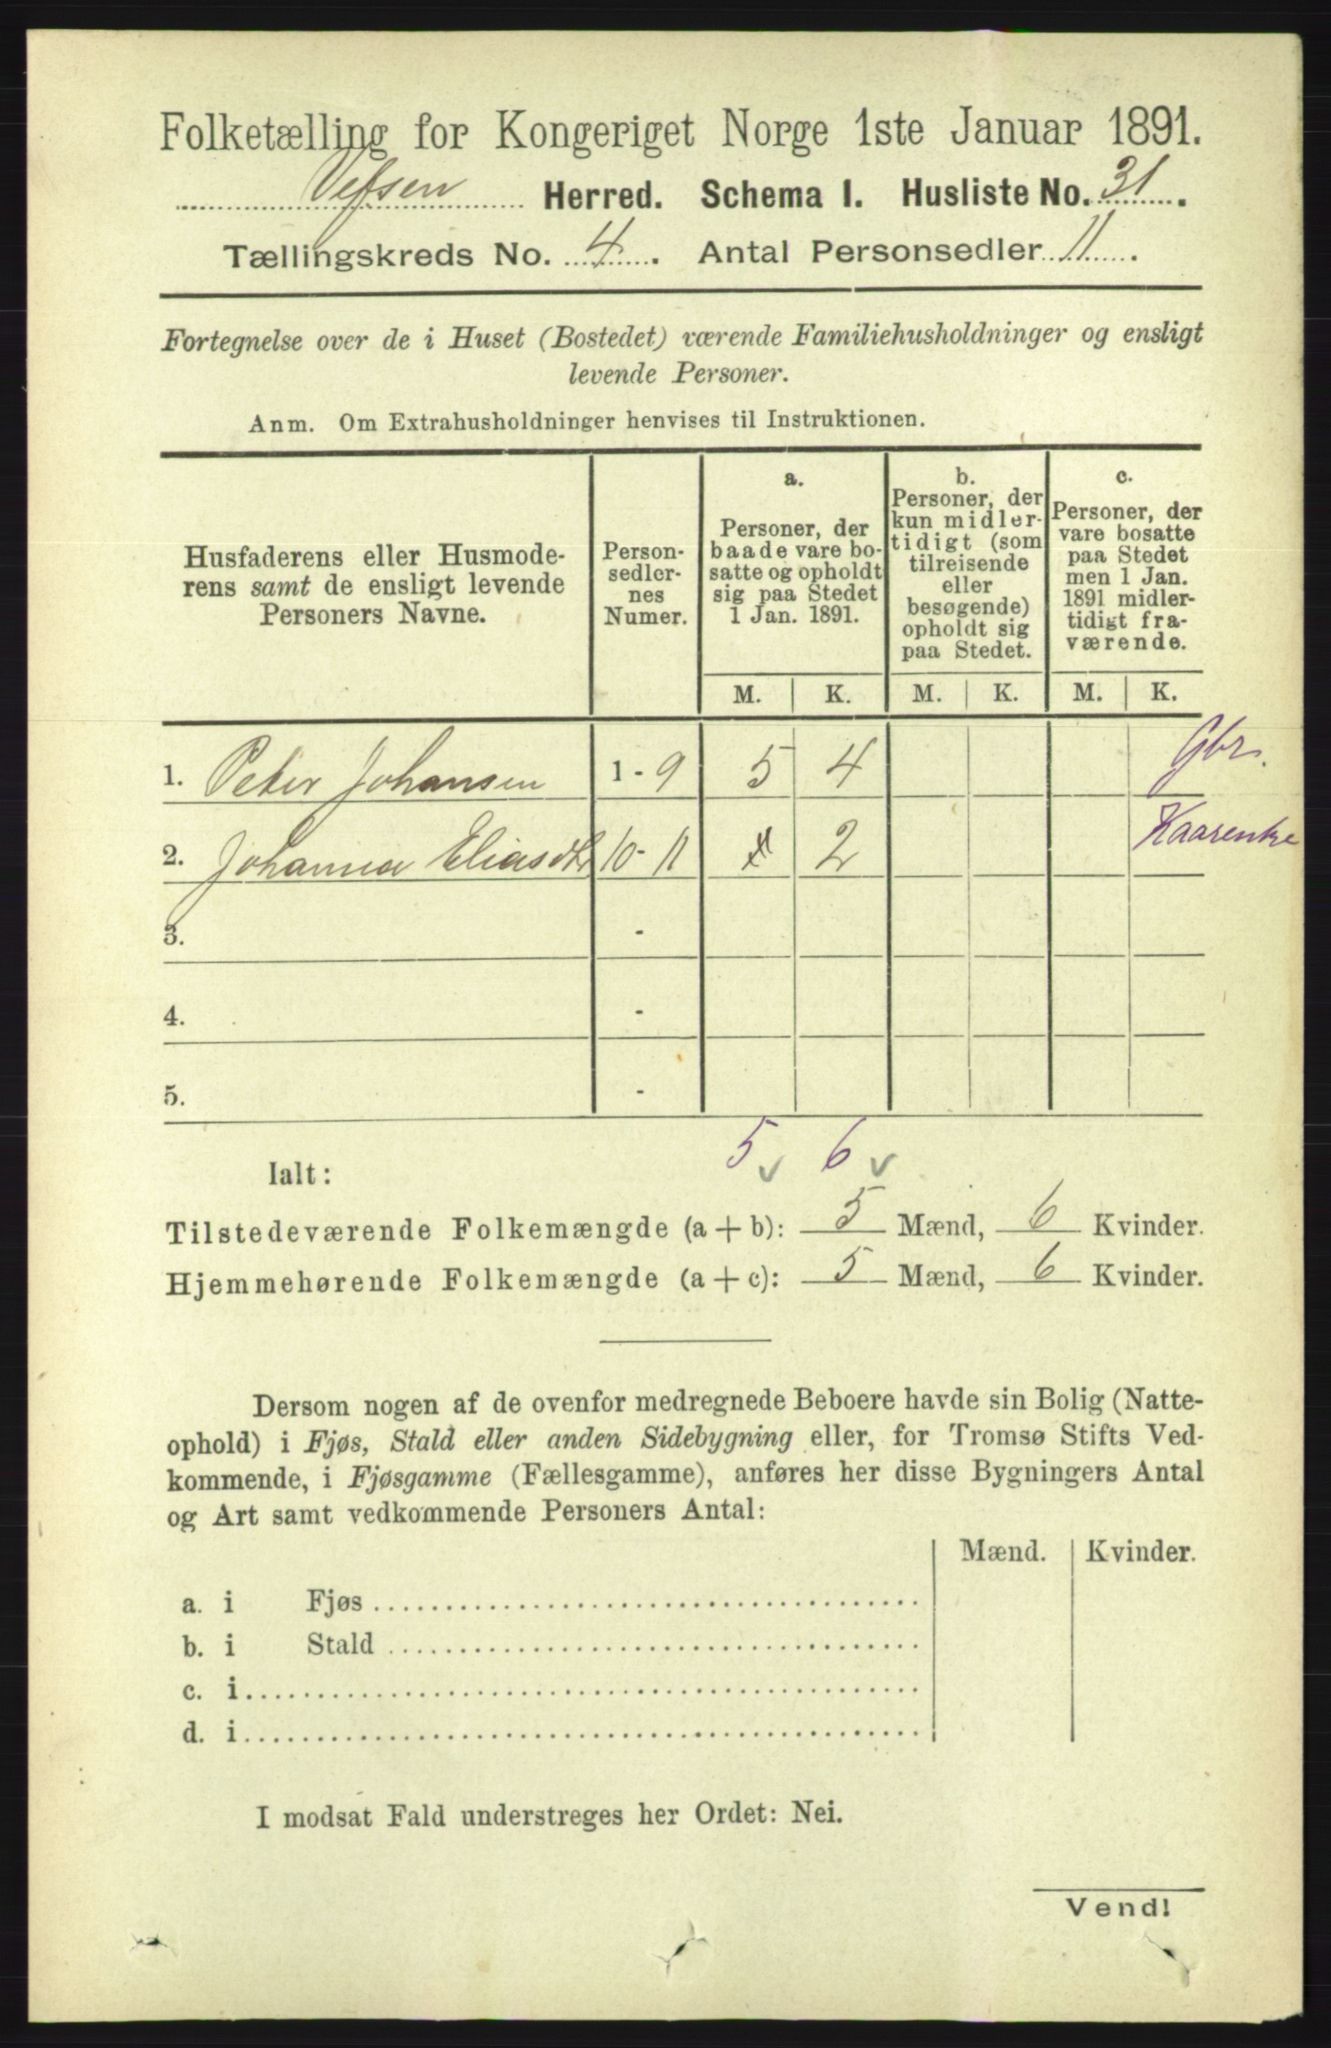 Folketælling for Kongeriget Norge 1ste Januar 1891.
Vefsen Herred. Schema I. Husliste No. 31.
Tællingskreds No. 4. Antal Personsedler 11.
Fortegnelse over de i Huset (Bostedet) værende Familiehusholdninger og ensligt
levende Personer.
Anm. Om Extrahusholdninger henvises til Instruktionen.
Husfaderens eller Husmode-
rens samt de ensligt levende
Personers Navne.
Person-
sedler-
nes
Numer.
a.
Personer, der
baade vare bo-
satte og opholdt
sig paa Stedet
1 Jan. 1891.
b.
Personer, der
kun midler-
tidigt (som
tilreisende
eller
besøgende)
opholdt sig
paa Stedet.
c.
Personer, der
vare bosatte
paa Stedet
men 1 Jan.
1891 midler-
tidigt fra-
værende.
M. K. M. K. M. K.
1. Peter Johansen 1 - 9 5 4 Gbr.
2. Johanna Eliasdtr 10 - 11 2 Kaarenke
3. -
4. -
5. -
5 v 6 v
Ialt:
Tilstedeværende Folkemængde (a + b): 5 Mænd, 6 Kvinder.
Hjemmehørende Folkemængde (a + c): 5 Mænd, 6 Kvinder.
Dersom nogen af de ovenfor medregnede Beboere havde sin Bolig (Natte-
ophold) i Fjøs, Stald eller anden Sidebygning eller, for Tromsø Stifts Ved-
kommende, i Fjøsgamme (Fællesgamme), anføres her disse Bygningers Antal
og Art samt vedkommende Personers Antal:
Mænd. Kvinder.
a. i Fjøs
b. i Stald
c. i
d. i
I modsat Fald understreges her Ordet: Nei.
Vend!